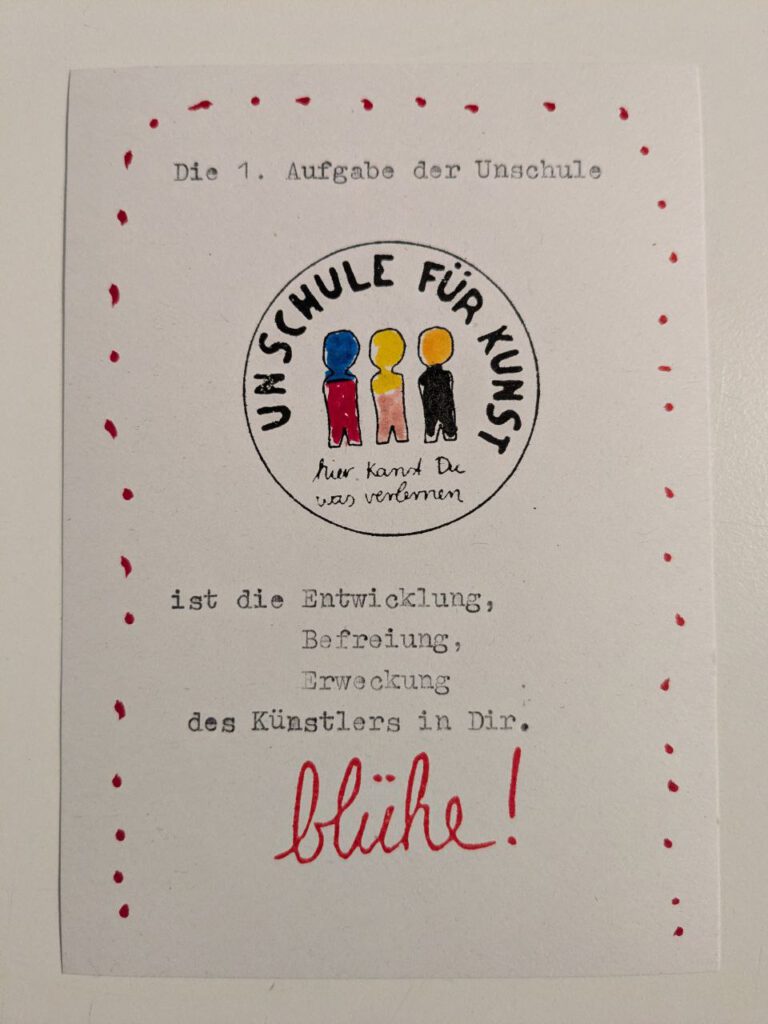 Die 1. Aufgabe der Unschule
UNSCHULE FÜR KUNST
hier kanst Du
was verlernen
ist die Entwicklung,
Befreiung,
Erweckung
des Künstlers in Dir.
blühe!